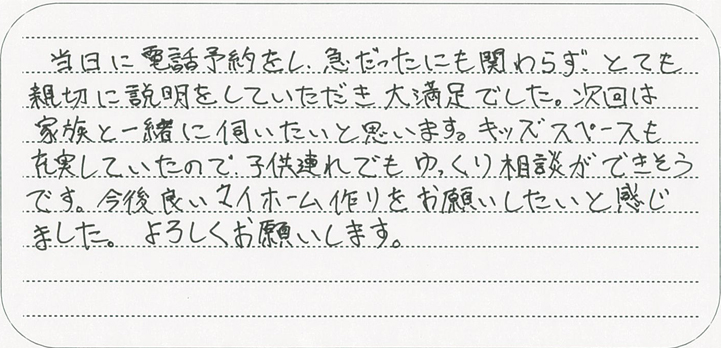 当日に電話予約をし、急だったにも関わらず、とても
親切に説明をしていただき大満足でした。次回は
家族と一緒に伺いたいと思います。キッズスペースも
充実していたので、子供連れでもゆっくり相談ができそう
です。今後良いマイホーム作りをお願いしたいと感じ
ました。よろしくお願いします。